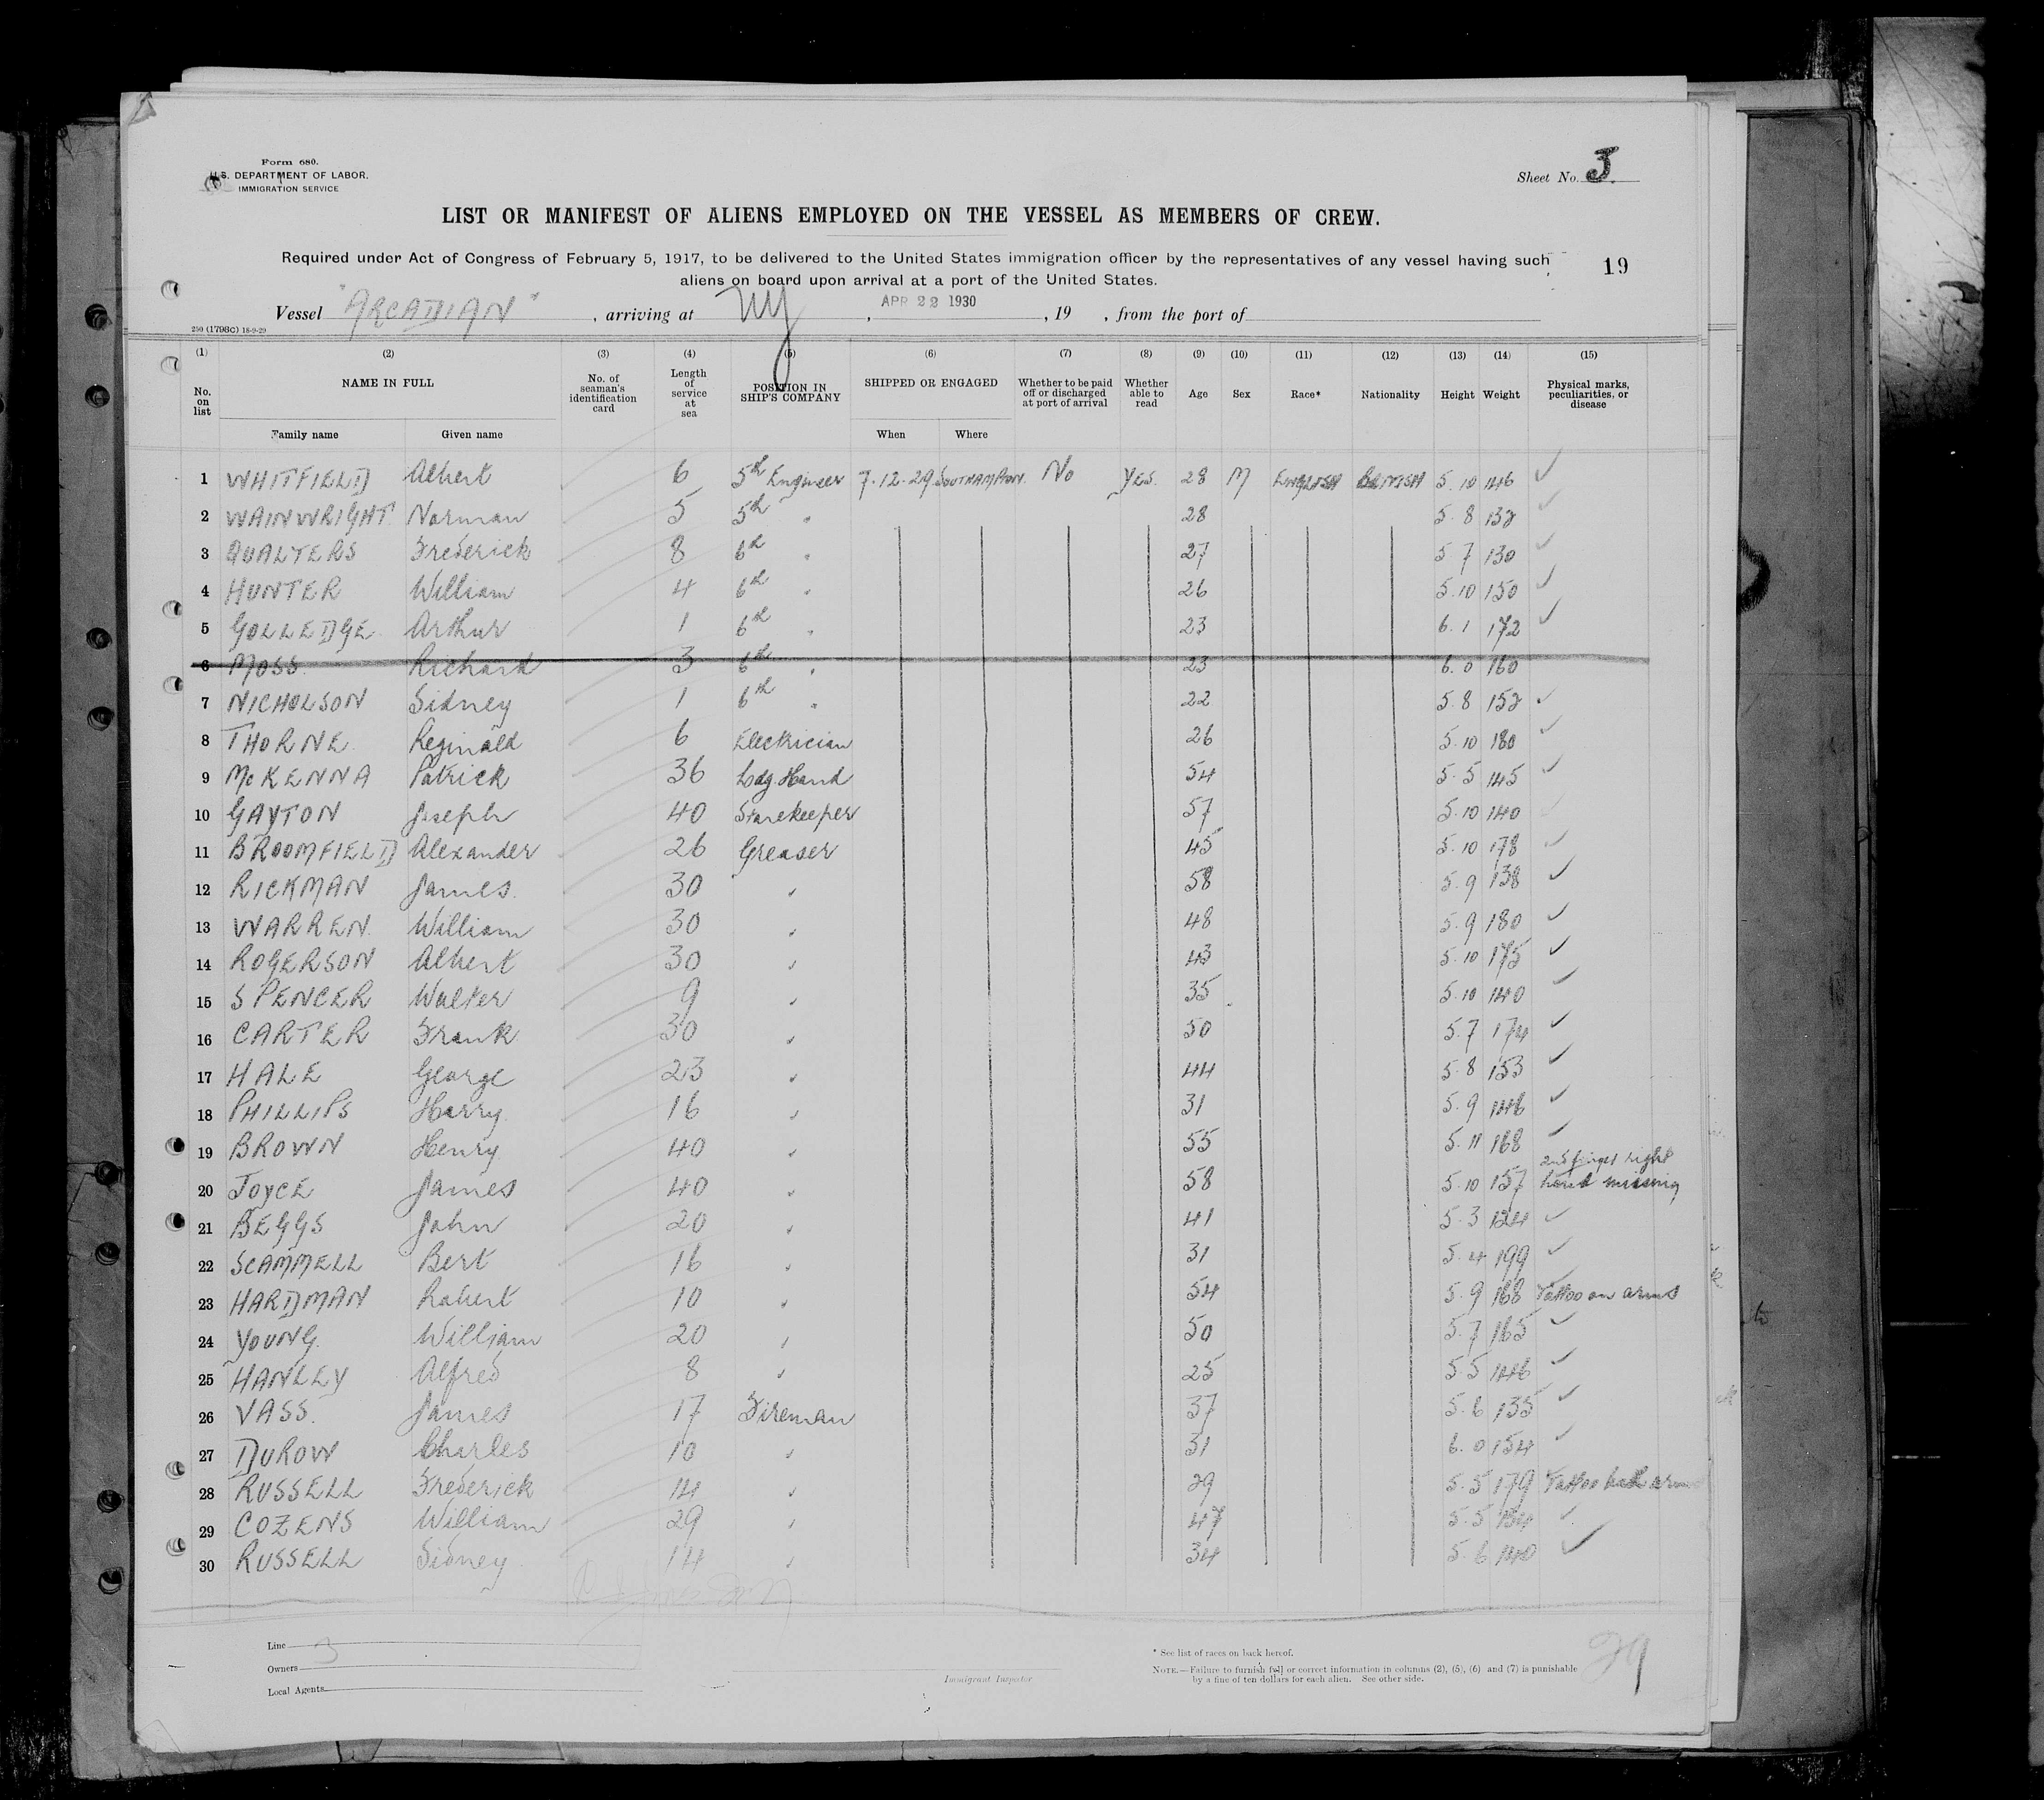 Form 680.
U.S. DEPARTMENT OF LABOR.
IMMIGRATION SERVICE
Sheet No. 3
LIST OR MANIFEST OF ALIENS EMPLOYED ON THE VESSEL AS MEMBERS OF CREW.
Required under Act of Congress of February 5, 1917, to be delivered to the United States immigration officer by the representatives of any vessel having such
aliens on board upon arrival at a port of the United States.
19
Vessel "ARCADIAN", arriving at NY, APR 22 1930, 19 , from the port of
250 (1798C) 18-9-29
(1) (2) (3) (4) (5) (6) (7) (8) (9) (10) (11) (12) (13) (14) (15)
No. on list NAME IN FULL Family name Given name No. of seaman's identification card Length of service at sea POSITION IN SHIP'S COMPANY SHIPPED OR ENGAGED When Where Whether to be paid off or discharged at port of arrival Whether able to read Age Sex Race* Nationality Height Weight Physical marks, peculiarities, or disease
1 WHITFIELD Albert 6 5th Engineer 7.12.29 SOUTHAMPTON No YES. 28 M ENGLISH BRITISH 5.10 146 ✓
2 WAINWRIGHT Norman 5 5th " 28 5.8 132 ✓
3 QUALTERS Frederick 8 6th " 27 5 7 130 ✓
4 HUNTER William 4 6th " 26 5.10 150 ✓
5 GOLLEDGE Arthur 1 6th " 23 6.1 172 ✓
6 MOSS Richard 3 6th " 23 6.0 160
7 NICHOLSON Sidney 1 6th " 22 5.8 152 ✓
8 THORNE Reginald 6 Electrician 26 5.10 180 ✓
9 McKENNA Patrick 36 Ldg Hand 54 5.5 145 ✓
10 GAYTON Joseph 40 Storekeeper 57 5.10 140 ✓
11 BROOMFIELD Alexander 26 Greaser 45 5.10 178 ✓
12 RICKMAN James 30 " 58 5.9 138 ✓
13 WARREN William 30 " 48 5.9 180 ✓
14 ROGERSON Albert 30 " 43 5.10 175 ✓
15 SPENCER Walter 9 " 35 5.10 140 ✓
16 CARTER Frank 30 " 50 5.7 174 ✓
17 HALE George 23 " 44 5.8 153 ✓
18 PHILLIPS Harry 16 " 31 5.9 146 ✓
19 BROWN Henry 40 " 55 5.11 168 ✓
20 JOYCE James 40 " 58 5.10 157 2nd finger right hand missing
21 BEGGS John 20 " 41 5.3 124 ✓
22 SCAMMELL Bert 16 " 31 5.4 199 ✓
23 HARDMAN Robert 10 " 54 5.9 168 Tattoo on arms
24 YOUNG William 20 " 50 5.7 165 ✓
25 HANLEY Alfred 8 " 25 5.5 146 ✓
26 VASS James 17 Fireman 37 5.6 135 ✓
27 DUROW Charles 10 " 31 6.0 154 ✓
28 RUSSELL Frederick 14 " 29 5.5 179 Tattoo both arms
29 COZENS William 29 " 47 5.5 154 ✓
30 RUSSELL Sidney 14 " 34 5.6 140 ✓
Line 3
Owners
Local Agents
Immigrant Inspector
* See list of races on back hereof.
NOTE.—Failure to furnish full or correct information in columns (2), (5), (6) and (7) is punishable
by a fine of ten dollars for each alien. See other side.
29